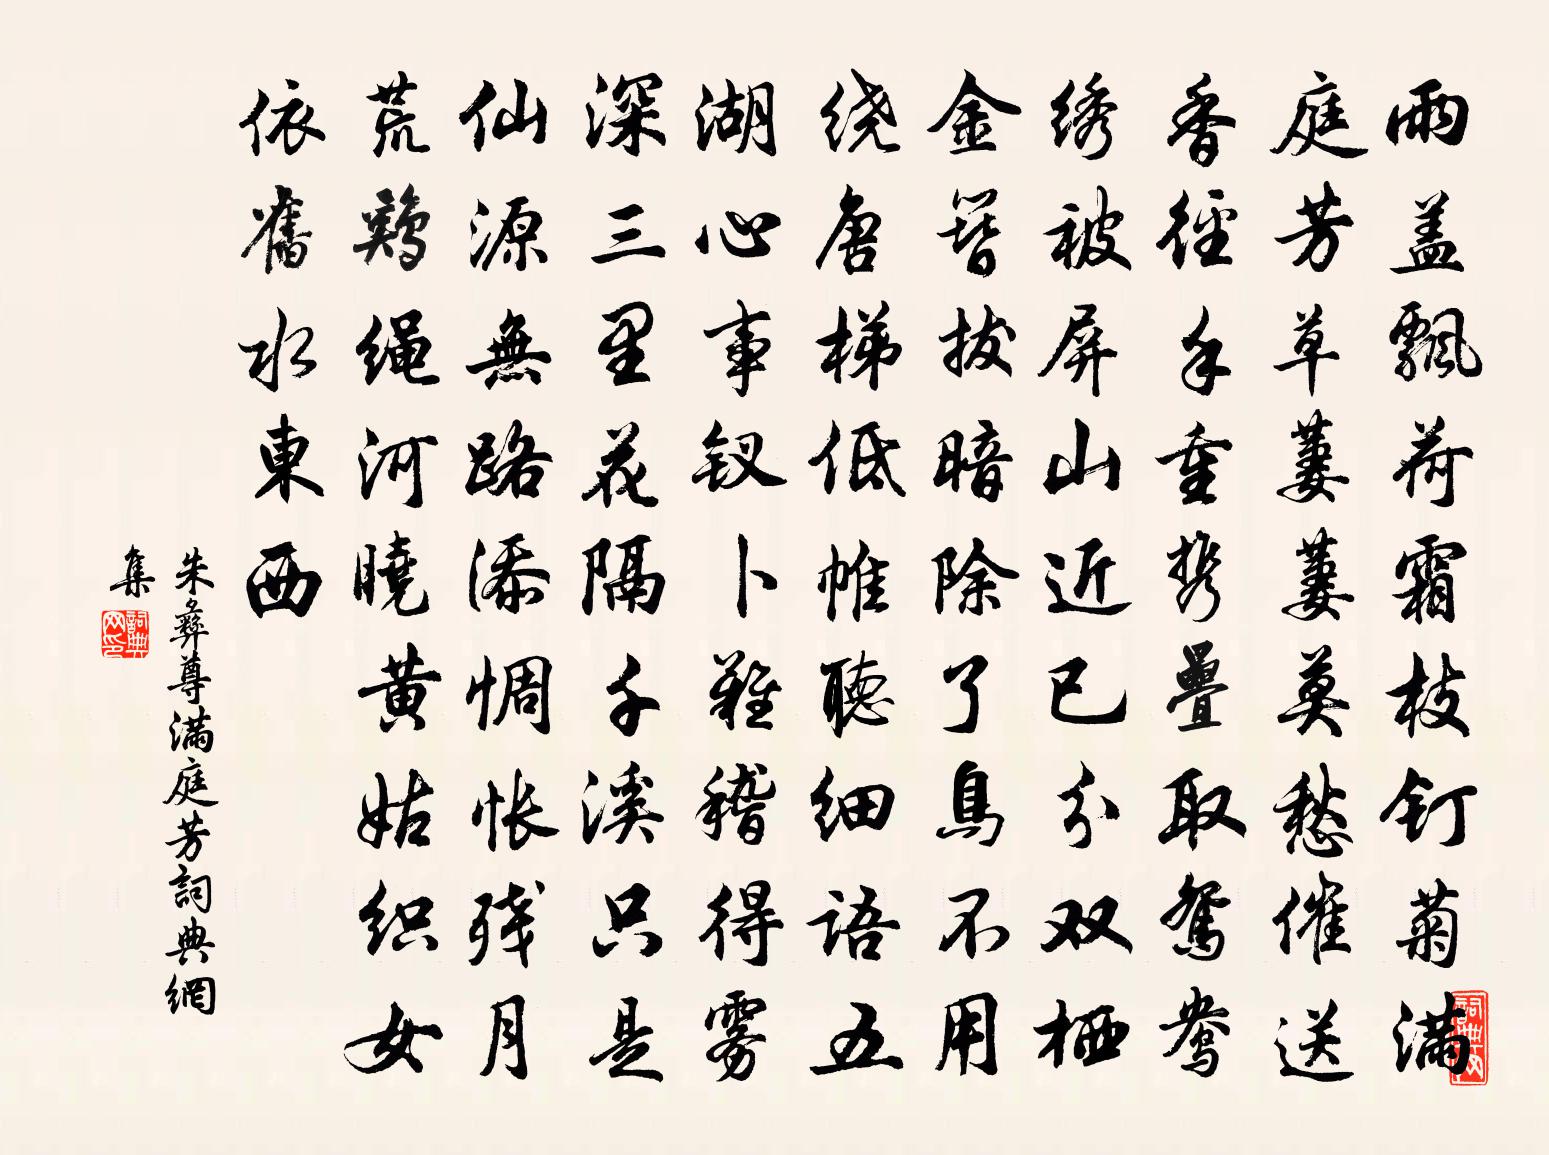 雨盖飘荷霜枝钉菊满
庭芳草萋萋莫愁催送
香径手重携叠取鸳鸯
绣被屏山近已分双栖
金簪拔暗除了鳥不用
绕唐梯低帷聽细语五
湖心事钗卜难稽得雾
深三里花隔千溪只是
仙源無路添惆怅残月
荒鷄绳河曉黄姑织女
依舊水東西
朱彝尊满庭芳詞典網
集
詞典网印
詞典网